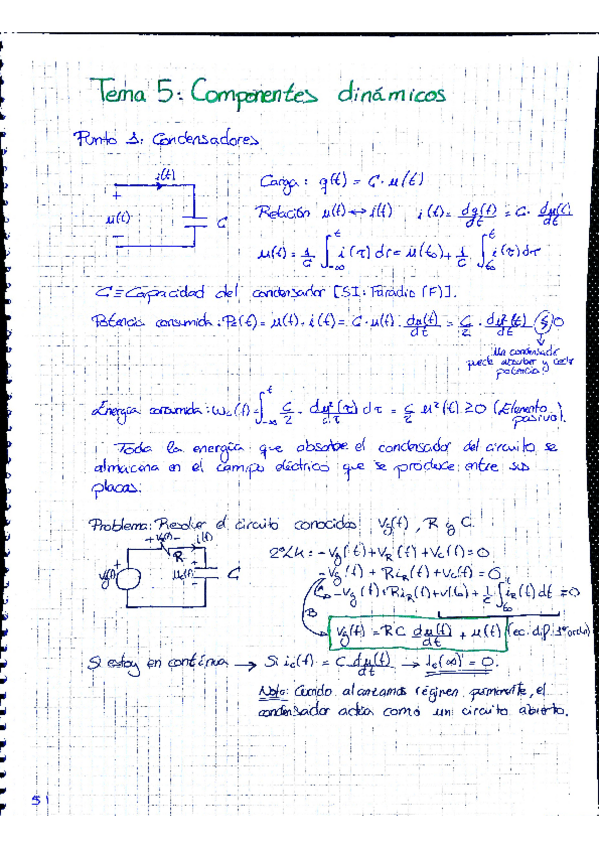 Tema 5: Componentes dinámicos
Punto 1: Condensadores
i(t)
+
u(t)
-
C
Carga: q(t) = C · u(t)
Relación u(t) ↔ i(t) i(t) = dq(t)/dt = C · du(t)/dt
u(t) = 1/C ∫_{-∞}^{t} i(τ) dτ = u(t₀) + 1/C · ∫_{t₀}^{t} i(τ) dτ
C ≡ Capacidad del condensador [SI: Faradio (F)].
Potencia consumida: Pc(t) = u(t) · i(t) = C · u(t) · du(t)/dt = C/2 · du²(t)/dt ≶ 0
Un condensador
puede absorber y ceder
potencia
Energía consumida: wc(t) = ∫_{-∞}^{t} C/2 · du²(τ)/dτ dτ = C/2 u²(t) ≥ 0 (Elemento
pasivo).
Toda la energía que absorbe el condensador del circuito se
almacena en el campo eléctrico que se produce entre sus
placas.
Problema: Resolver el circuito conocidos Vg(t), R y C.
+ VR(t) - i(t)
R
Vg(t)
C
2ºLK: -Vg(t) + VR(t) + Vc(t) = 0
-Vg(t) + RiR(t) + Vc(t) = 0
-Vg(t) + RiR(t) + V(t₀) + 1/C ∫_{t₀}^{t} iR(t) dt = 0
B
Vg(t) = RC du(t)/dt + u(t) (ec. dif. 1er orden)
Si estoy en continua → Si ic(t) = C du(t)/dt → ic(∞) = 0.
Nota: Cuando alcanzamos régimen permanente, el
condensador actúa como un circuito abierto.
51